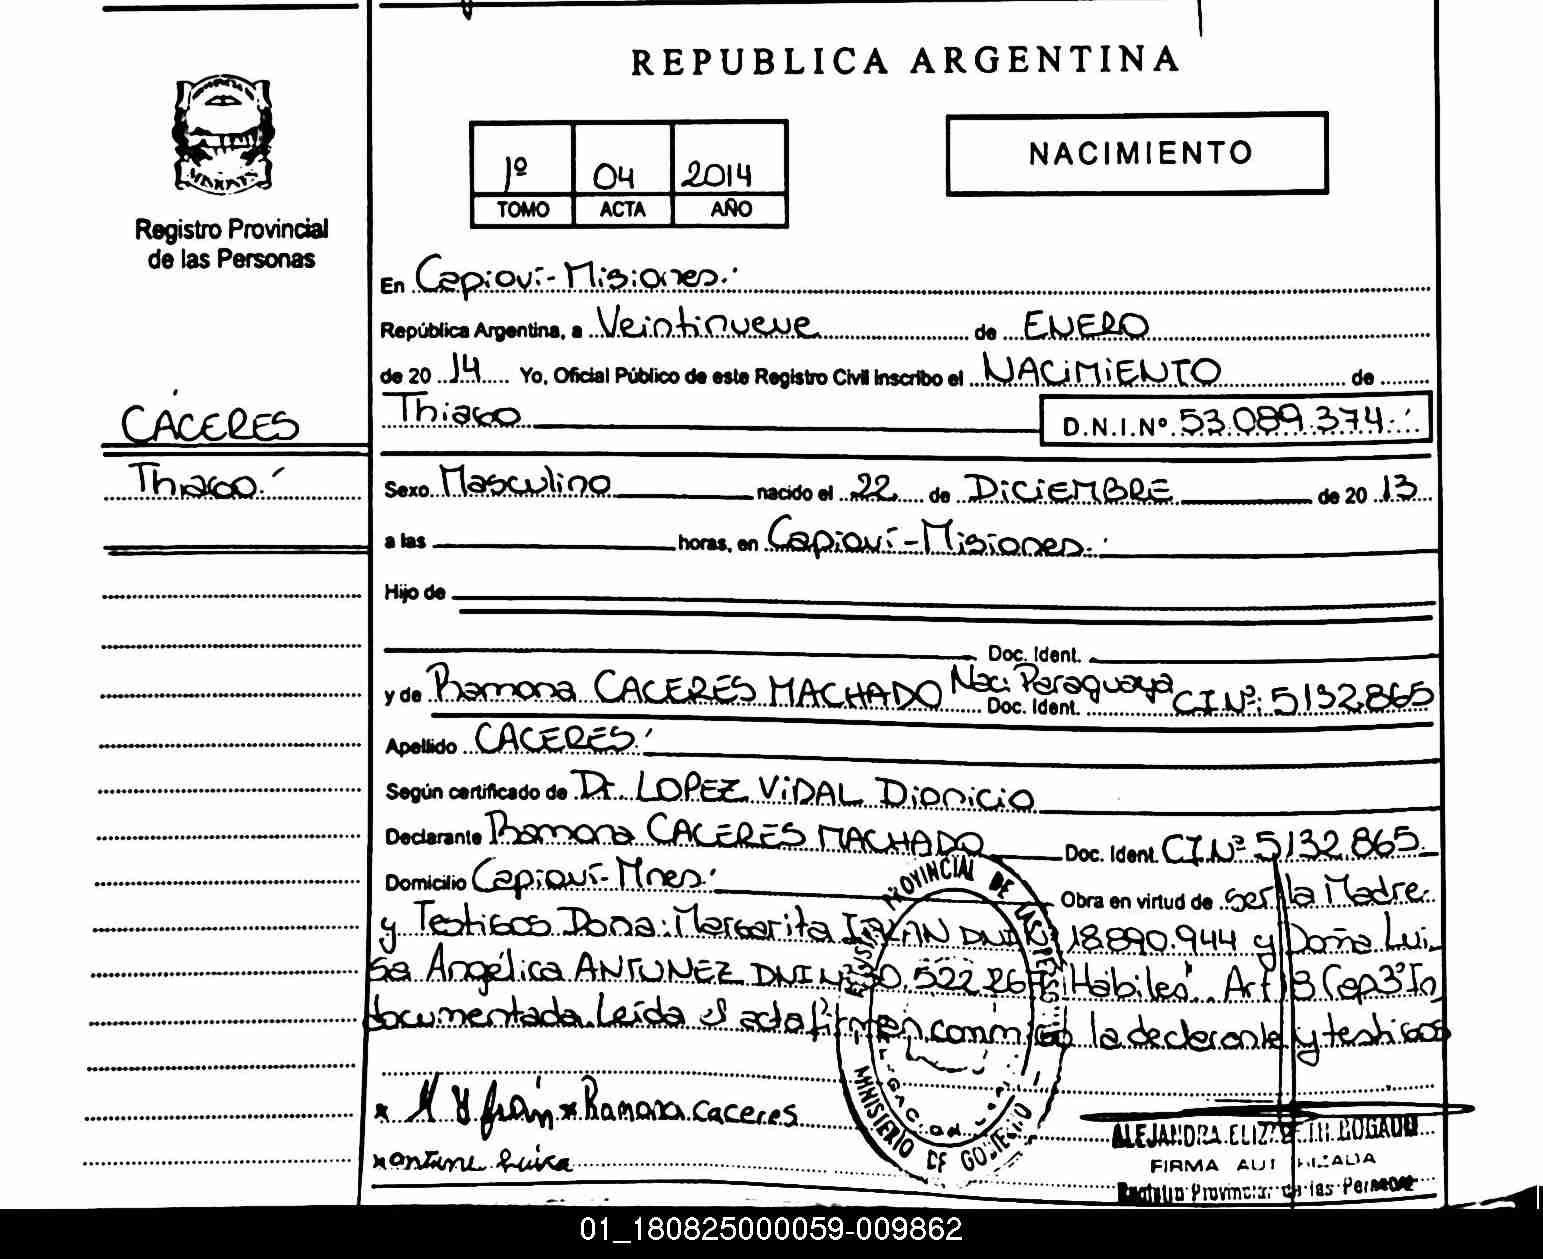 REPUBLICA ARGENTINA
MISIONES
Registro Provincial
de las Personas
1º 04 2014
TOMO ACTA AÑO
NACIMIENTO
En Capioví-Misiones.
República Argentina, a Veintinueve de ENERO
de 20 14 Yo, Oficial Público de este Registro Civil inscribo el NACIMIENTO de
CÁCERES
Thiago
D.N.I.Nº 53.089.374
Thiago
Sexo Masculino nacido el 22 de DICIEMBRE de 20 13
a las horas, en Capioví-Misiones.
Hijo de
Doc. Ident.
y de Ramona CACERES MACHADO Nac: Paraguaya Doc. Ident. CI Nº: 5132.865
Apellido CACERES
Según certificado de Dr. LOPEZ VIDAL Dionicio
Declarante Ramona CACERES MACHADO Doc. Ident. CI.Nº 5132.865.
Domicilio Capioví-Mnes. Obra en virtud de ser la Madre.
y Testigos Dona: Margarita DNI Nº 18.890.944 y Doña Lui_
sa Angélica ANTUNEZ DNI Nº 30.522.267 "Hábiles". Art 18 Cap3º In_
documentada. Leída el acta firman conmigo la declarante y testigos
REGISTRO PROVINCIAL DE LAS PERSONAS
MINISTERIO DE GOBIERNO
x Ramona caceres
x antune Luisa
ALEJANDRA ELIZABETH BOGADO
FIRMA AUTORIZADA
Registro Provincial de las Personas
01_180825000059-009862